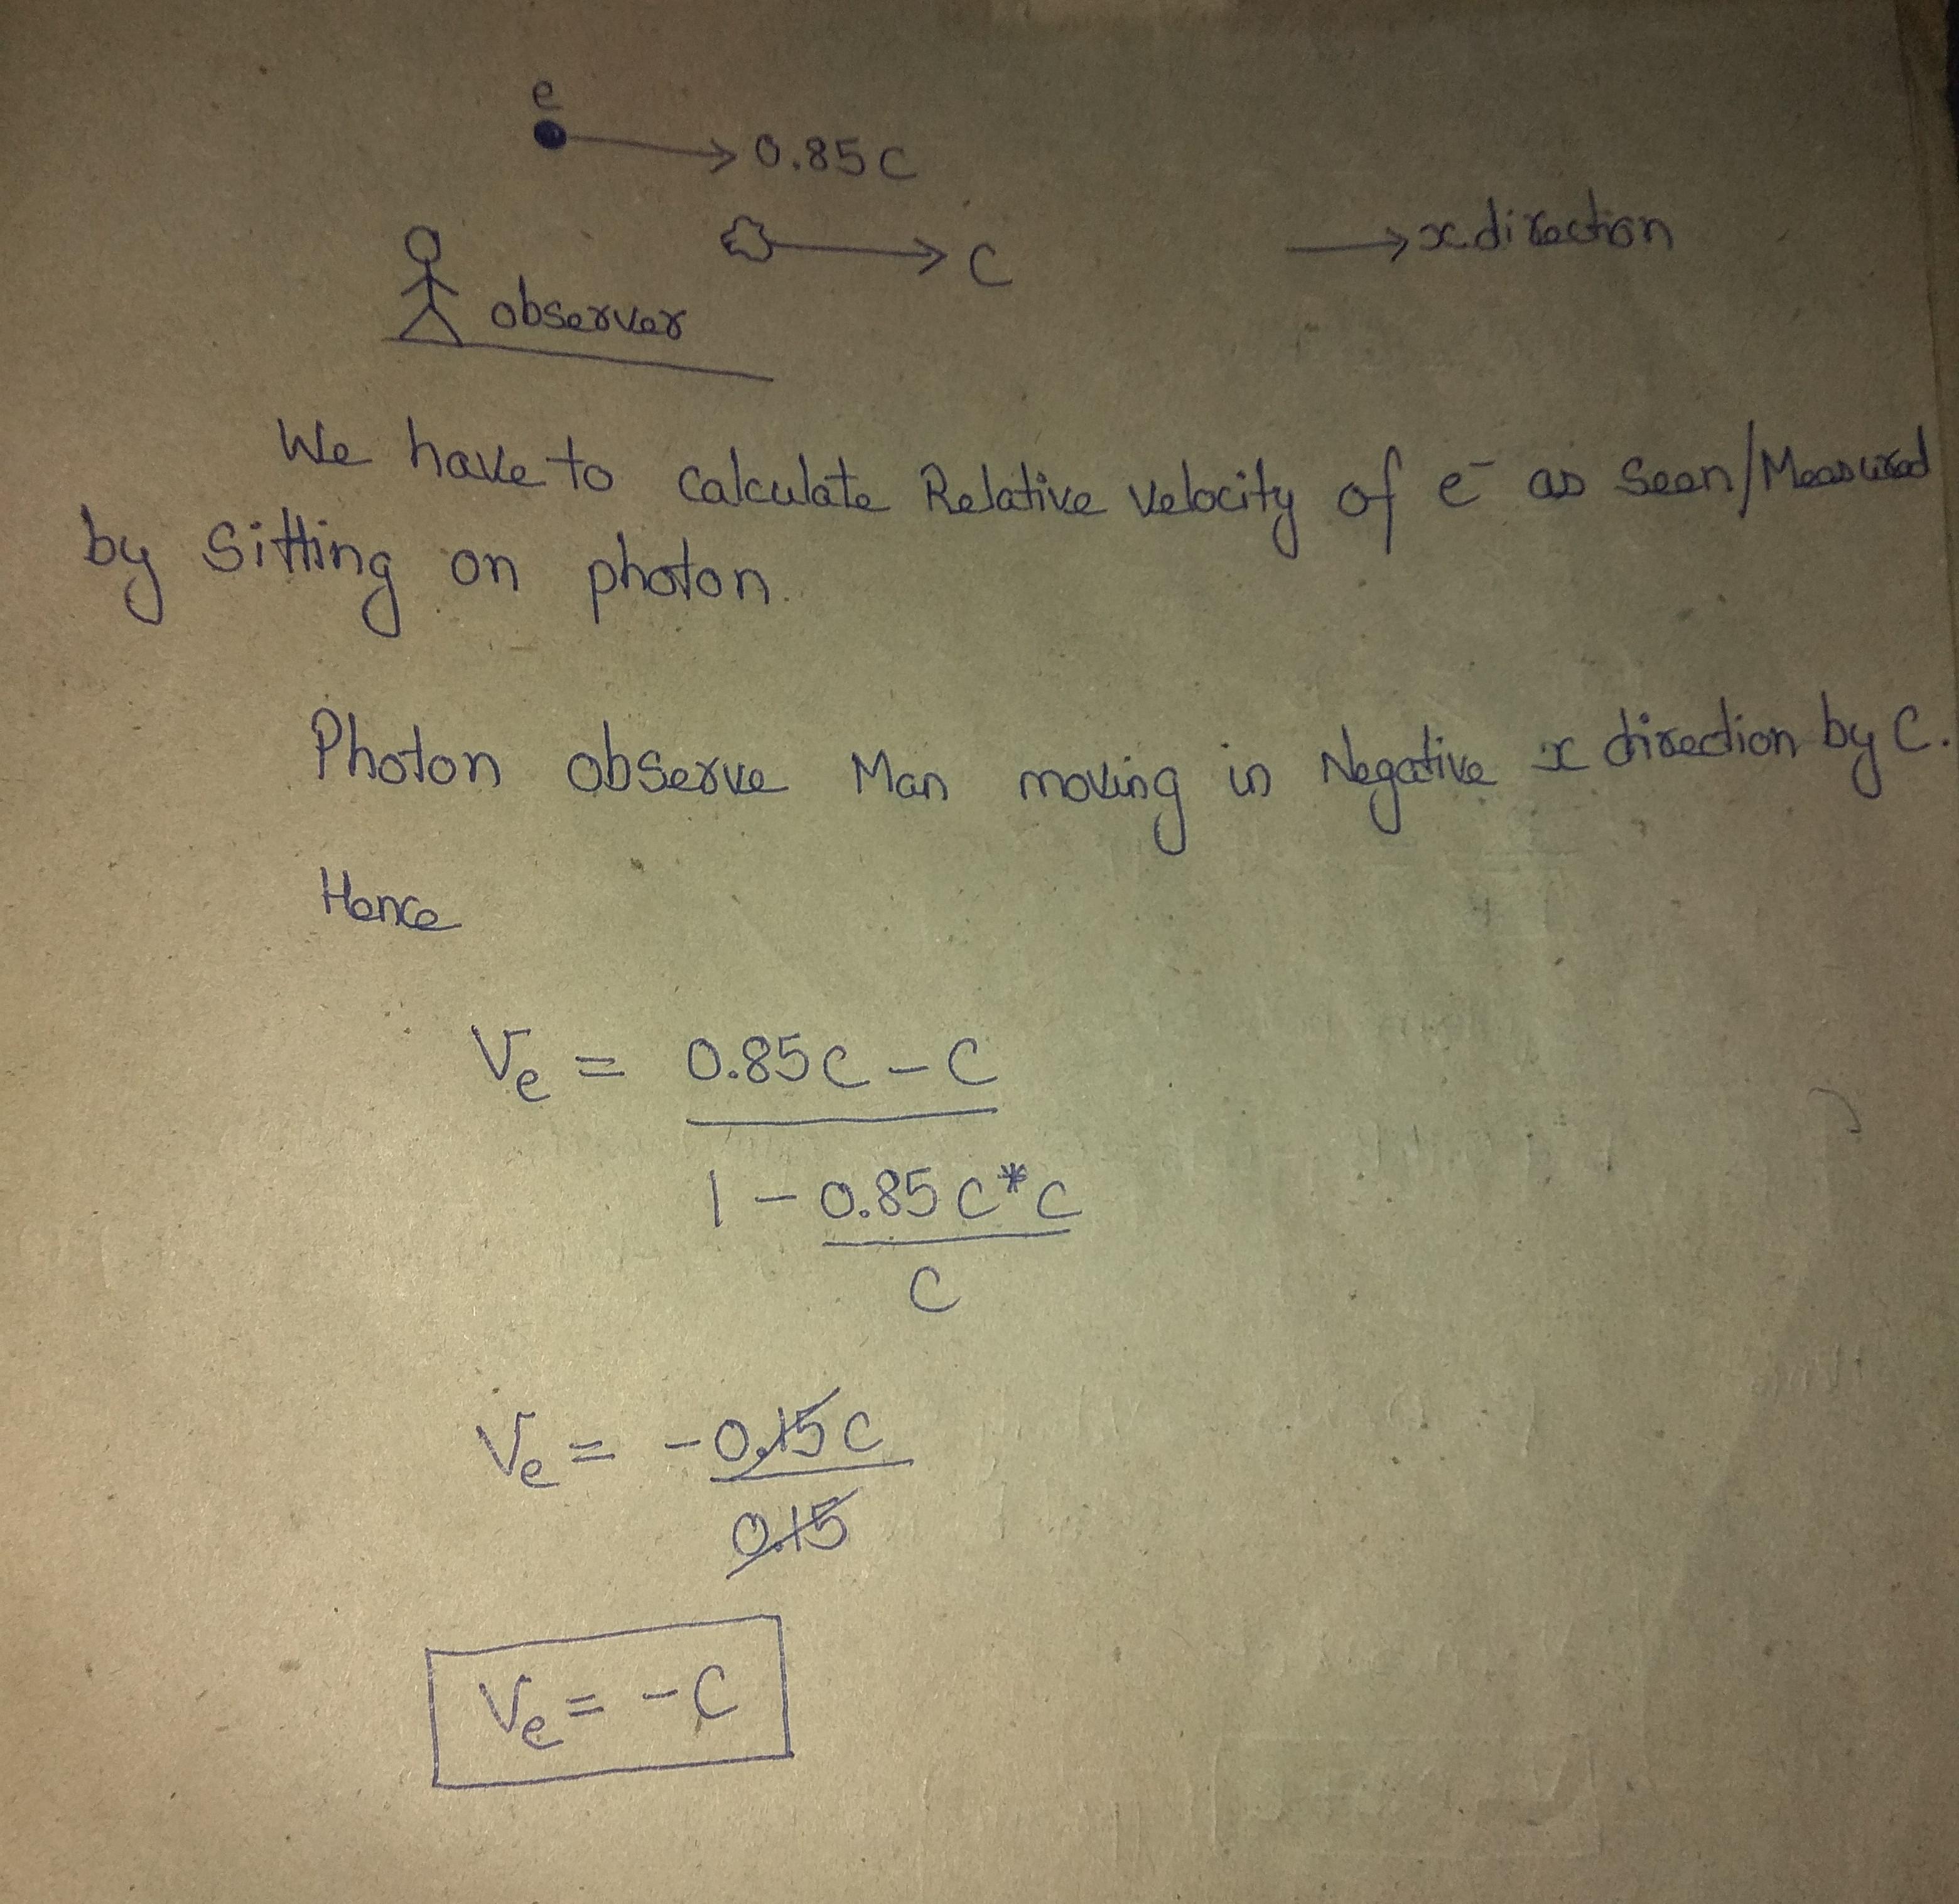 e
0.85C
C
x direction
observer
We have to calculate Relative velocity of e⁻ as seen/Measured
by sitting on photon.
Photon observe Man moving in Negative x direction by C.
Hence
Ve = 0.85C - C
1 - 0.85C*C
C
Ve = -0.15C
0.15
Ve = -C